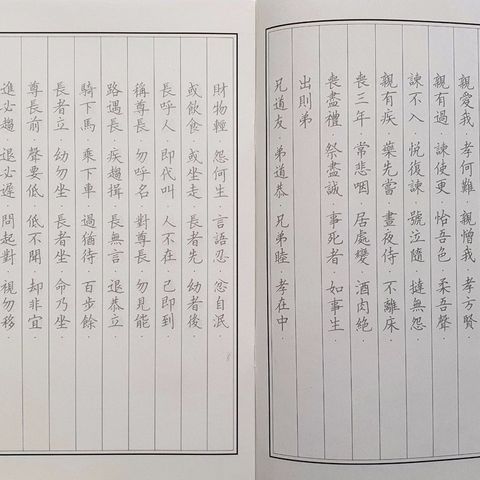 親愛我．孝何難．親憎我．孝方賢．
親有過．諫使更．怡吾色．柔吾聲．
諫不入．悅復諫．號泣隨．撻無怨．
親有疾．藥先嘗．晝夜侍．不離床．
喪三年．常悲咽．居處變．酒肉絕．
喪盡禮．祭盡誠．事死者．如事生．
出則弟
兄道友．弟道恭．兄弟睦．孝在中．
財物輕．怨何生．言語忍．忿自泯．
或飲食．或坐走．長者先．幼者後．
長呼人．即代叫．人不在．己即到．
稱尊長．勿呼名．對尊長．勿見能．
路遇長．疾趨揖．長無言．退恭立．
騎下馬．乘下車．過猶待．百步餘．
長者立．幼勿坐．長者坐．命乃坐．
尊長前．聲要低．低不聞．却非宜．
進必趨．退必遲．問起對．視勿移．